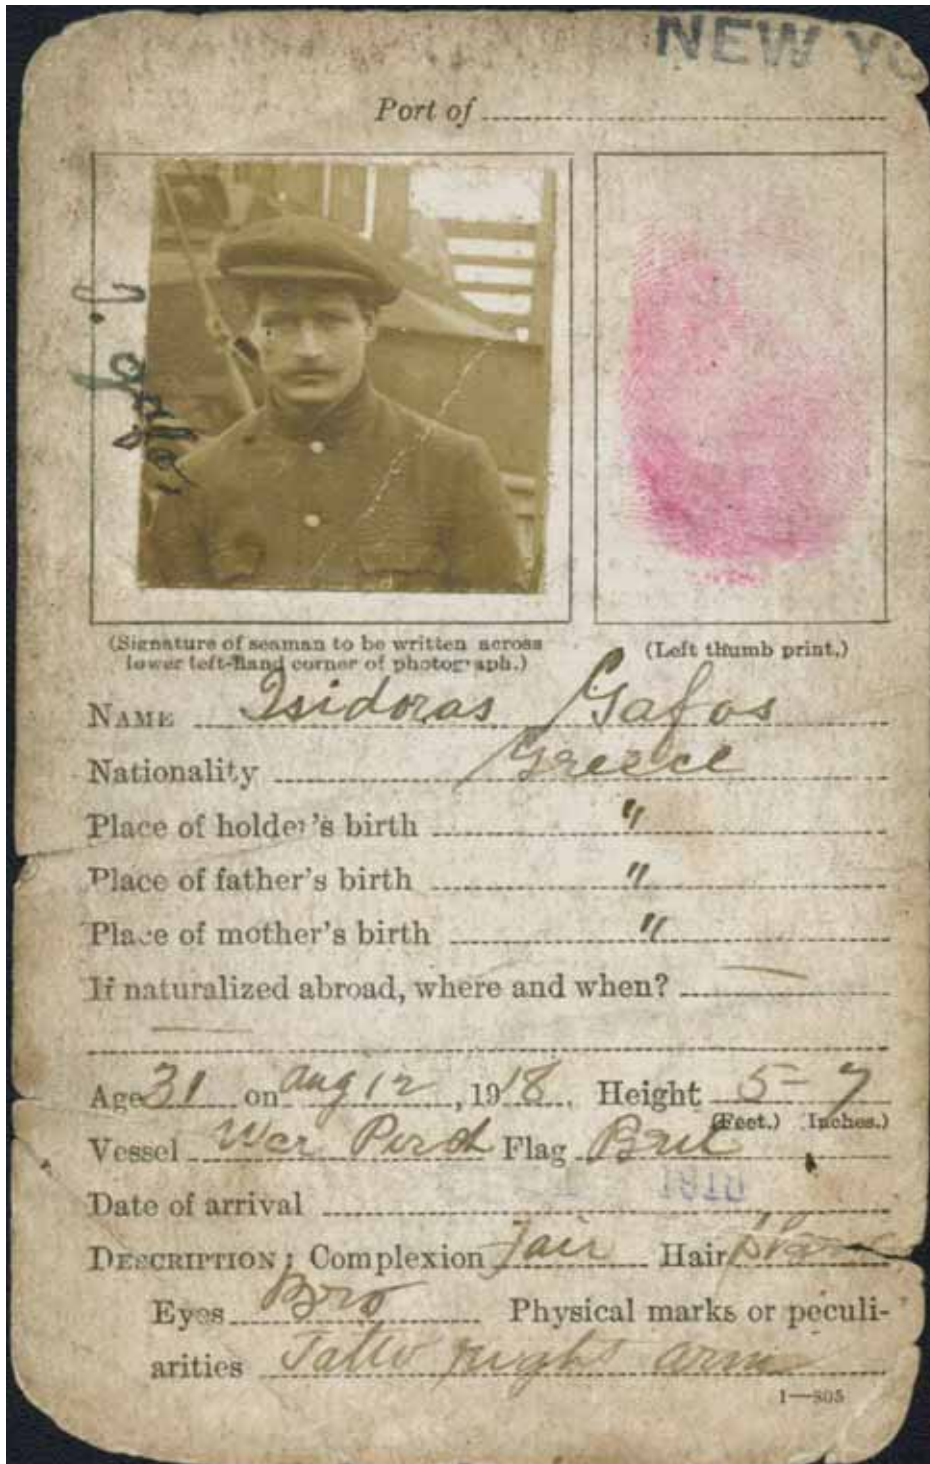 NEW YO
Port of
J. Gafos
(Signature of seaman to be written across
lower left-hand corner of photograph.)
(Left thumb print.)
NAME Isidoras Gafos
Nationality Greece
Place of holder's birth "
Place of father's birth "
Place of mother's birth "
If naturalized abroad, where and when? —
—
Age 31 on Aug 12, 1918. Height 5-7
(Feet.) Inches.)
Vessel War Perch Flag
Date of arrival
DESCRIPTION: Complexion Fair Hair
Eyes Bro Physical marks or peculi-
arities Latto right arm
1—805